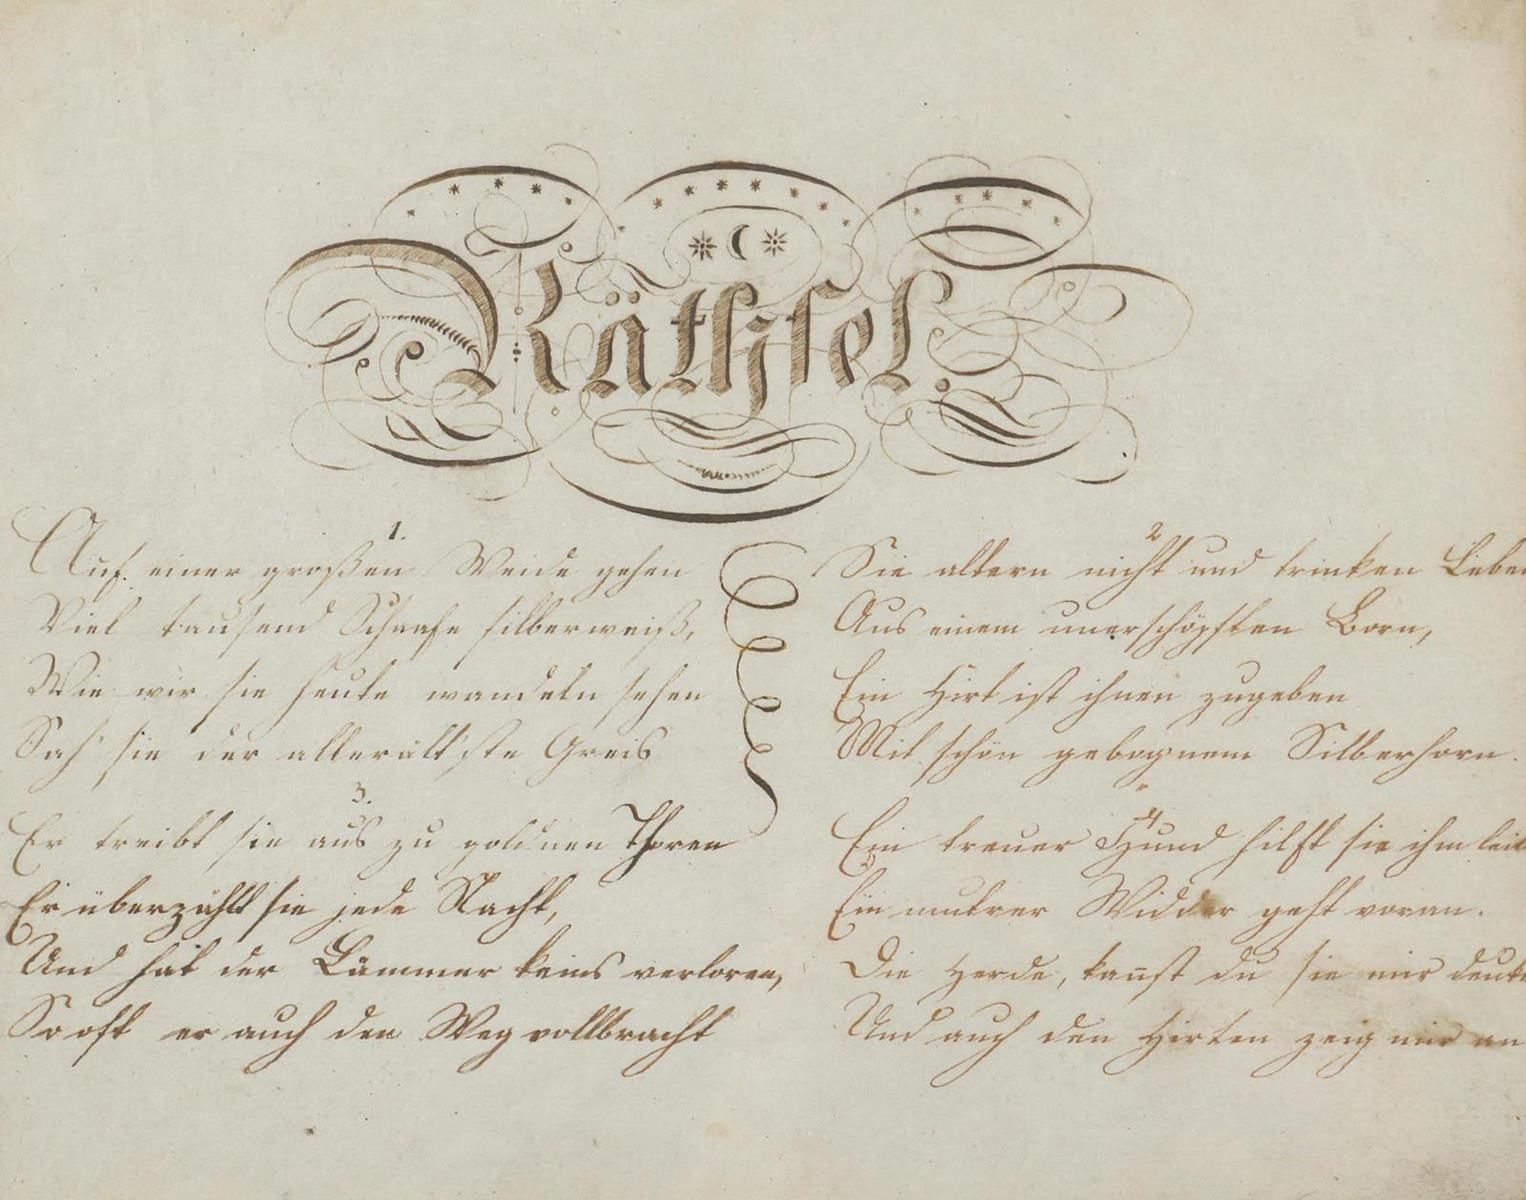 Räthsel.
1.
Auf einer großen Weide gehen
Viel tausend Schaafe silberweiß,
Wie wir sie heute wandeln sehen
Sah' sie der allerält'ste Greis
2
Sie altern nicht und trinken Leben
Aus einem unerschöpften Born,
Ein Hirt ist ihnen zugeben
Mit schön gebognem Silberhorn.
3.
Er treibt sie aus zu goldnen Thoren
Er überzählt sie jede Nacht,
Und hat der Lämmer keins verloren,
So oft er auch den Weg vollbracht
4
Ein treuer Hund hilft sie ihm leit
Ein mutrer Widder geht voran.
Die Herde, kanst du sie mir deute
Und auch den Hirten zeig mir an